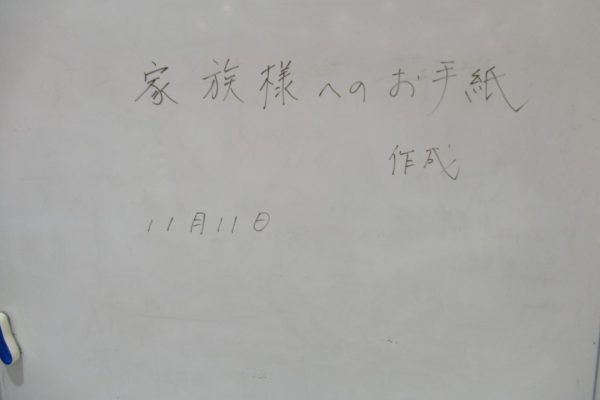 家族様へのお手紙
作成
11月11日